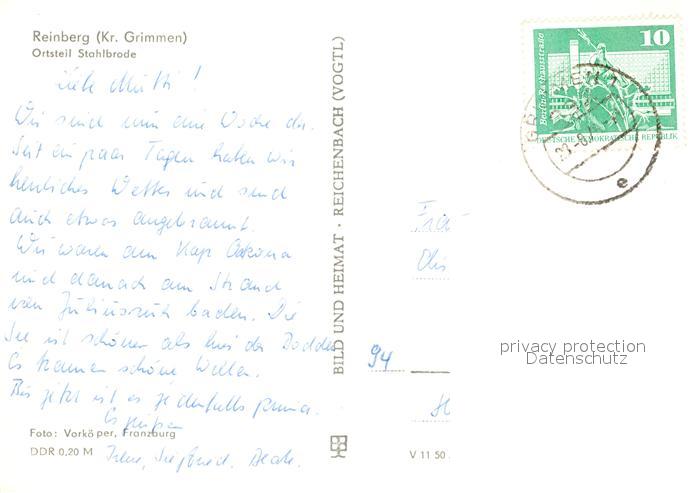 Reinberg (Kr. Grimmen)
Ortsteil Stahlbrode
Liebe Mutti!
Wir sind nun eine Woche da.
Seit ein paar Tagen haben wir
herrliches Wetter und sind
auch etwas angebrannt.
Wir waren am Kap Arkona
und danach am Strand
von Juliusruh baden. Die
See ist schöner als hier der Bodden
Es kamen schöne Wellen.
Bis jetzt ist es jedenfalls prima.
Es grüßen
Irene, Siegfried, Beate.
Foto: Vorköper, Franzburg
DDR 0,20 M
BILD UND HEIMAT · REICHENBACH (VOGTL)
V 11 50
10
Berlin, Rathausstraße
DEUTSCHE DEMOKRATISCHE REPUBLIK
e
Frau
94
privacy protection
Datenschutz